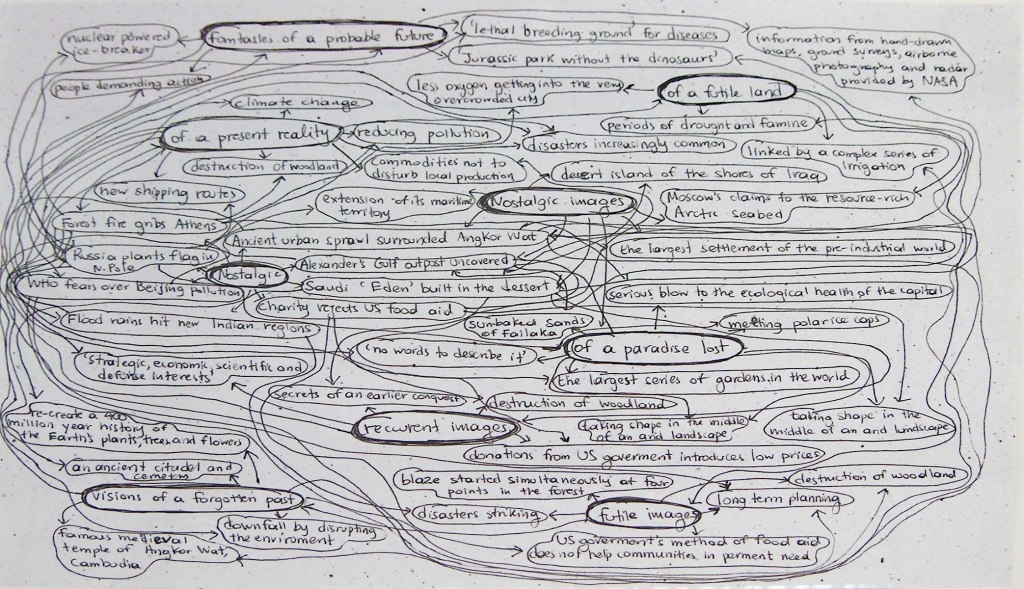 nuclear powered
ice-breaker
fantasies of a probable future
'lethal breeding ground' for diseases
'Jurassic park without the dinosaurs'
information from hand-drawn
maps, ground surveys, airborne
photography and radar
provided by NASA
people demanding action
climate change
less oxygen getting into the very
overcrowded city
of a futile land
of a present reality
reducing pollution
periods of drought and famine
disasters increasingly common
destruction of woodland
commodities not to
disturb local production
linked by a complex series of
Irrigation
desert island of the shores of Iraq
new shipping routes
extension of its maritime
territory
Nostalgic images
Moscow's claims to the resource-rich
Arctic seabed
Forest fire gribs Athens
Ancient urban sprawl surrounded Angkor Wat
the largest settlement of the pre-industrial world
Russia plants flag in
N.Pole
Nostalgic
Alexander's Gulf outpost uncovered
WHO fears over Beijing pollution
Saudi 'Eden' built in the dessert
serious blow to the ecological health of the capital
Charity rejects US food aid
Flood rains hit new Indian regions
sunbaked sands
of Failaka
melting polar ice caps
'no words to describe it'
of a paradise lost
'strategic, economic, scientific and
defense interests'
the largest series of gardens in the world
secrets of an earlier conquest
destruction of woodland
re-create a 400
million year history of
the Earth's plants, trees and flowers
recurent images
taking shape in the middle
of an arid landscape
taking shape in the
middle of an arid landscape
donations from US goverment introduces low prices
an ancient citadel and
blaze started simultaneously at four
points in the forest
destruction of woodland
visions of a forgotten past
long term planning
disasters striking
futile images
famous medieval
temple of Angkor Wat,
Cambodia
downfall by disrupting
the enviroment
US goverment's method of food aid
does not help communities in perment need